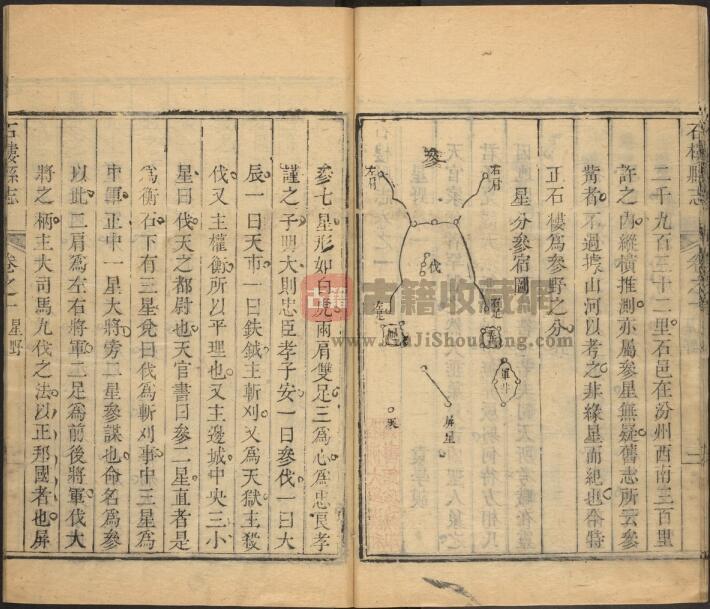 石樓縣志
卷之一
二千九百三十二里石邑在汾州西南三百里
許之內縱橫推測亦屬參星無疑舊志所云參
觜者不過據山河以考之非緣星而紀也合特
正石樓為參野之分
星分參宿圖
參
右肩
左肩
伐
右足
左足
厠
軍井
屏星
屎
參七星形如白虎兩肩雙足三為心為忠良孝
謹之子明大則忠臣孝子安一曰參伐一曰大
辰一曰天市一曰鈇鉞主斬刈又為天獄主殺
伐又主權衡所以平理也又主邊城中央三小
星曰伐天之都尉也天官書曰參二星直者是
為衡石下有三星兌曰伐為斬刈事中三星為
中軍正中一星大將旁二星參謀也命名為參
以此二肩為左右將軍二足為前後將軍伐大
將之柄主大司馬九伐之法以正邦國者也屏
石樓縣志
卷之一 星野
古籍
古籍收藏網
www.GuJiShouCang.com